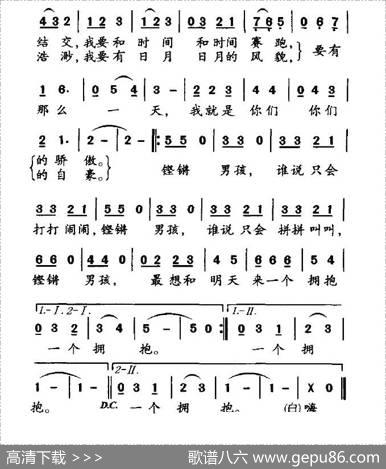 4 3 2 | 1 2 3 | 1 2 3 | 0 3 2 1 | 7 6 5 | 0 6 7 |
结交,我要和 时间 和时间 赛跑,
浩渺,我要有 日月 日月的 风貌,} 要有
1 6· | 0 5 4 | 3 - | 2 2 3 | 4 4 | 0 3 3 |
那么 一 天, 我就是 你们 你们
2 1· | 2 - | 2 - |: 5 5 0 | 3 3 0 | 3 3 2 1 |
{的 骄 傲。
{的 自 豪。 铿锵 男孩, 谁说 只会
3 3 2 1 | 5 5 0 | 3 3 0 | 3 3 2 1 | 3 3 2 1 |
打打 闹闹,铿锵 男孩, 谁说 只会 拼拼 叫叫,
6 6 0 | 4 4 0 | 0 2 2 3 | 4 4 5 | 6 6 6 | 5 4 |
铿锵 男孩, 最想和 明天 来一个 拥抱
1.-I. 2-I. 1.-II.
0 3 2 | 3 4 | 5 - | 5 0 :| 0 3 1 | 2 3 |
一个 拥 抱。 一个 拥
2-II.
1 - | 1 - :| 0 3 1 | 2 3 | 1 - | 1 - | X 0 ‖
抱。 D.C. 一个 拥 抱。 (白)嗨
高清下载 >>> 歌谱八六 www.gepu86.com